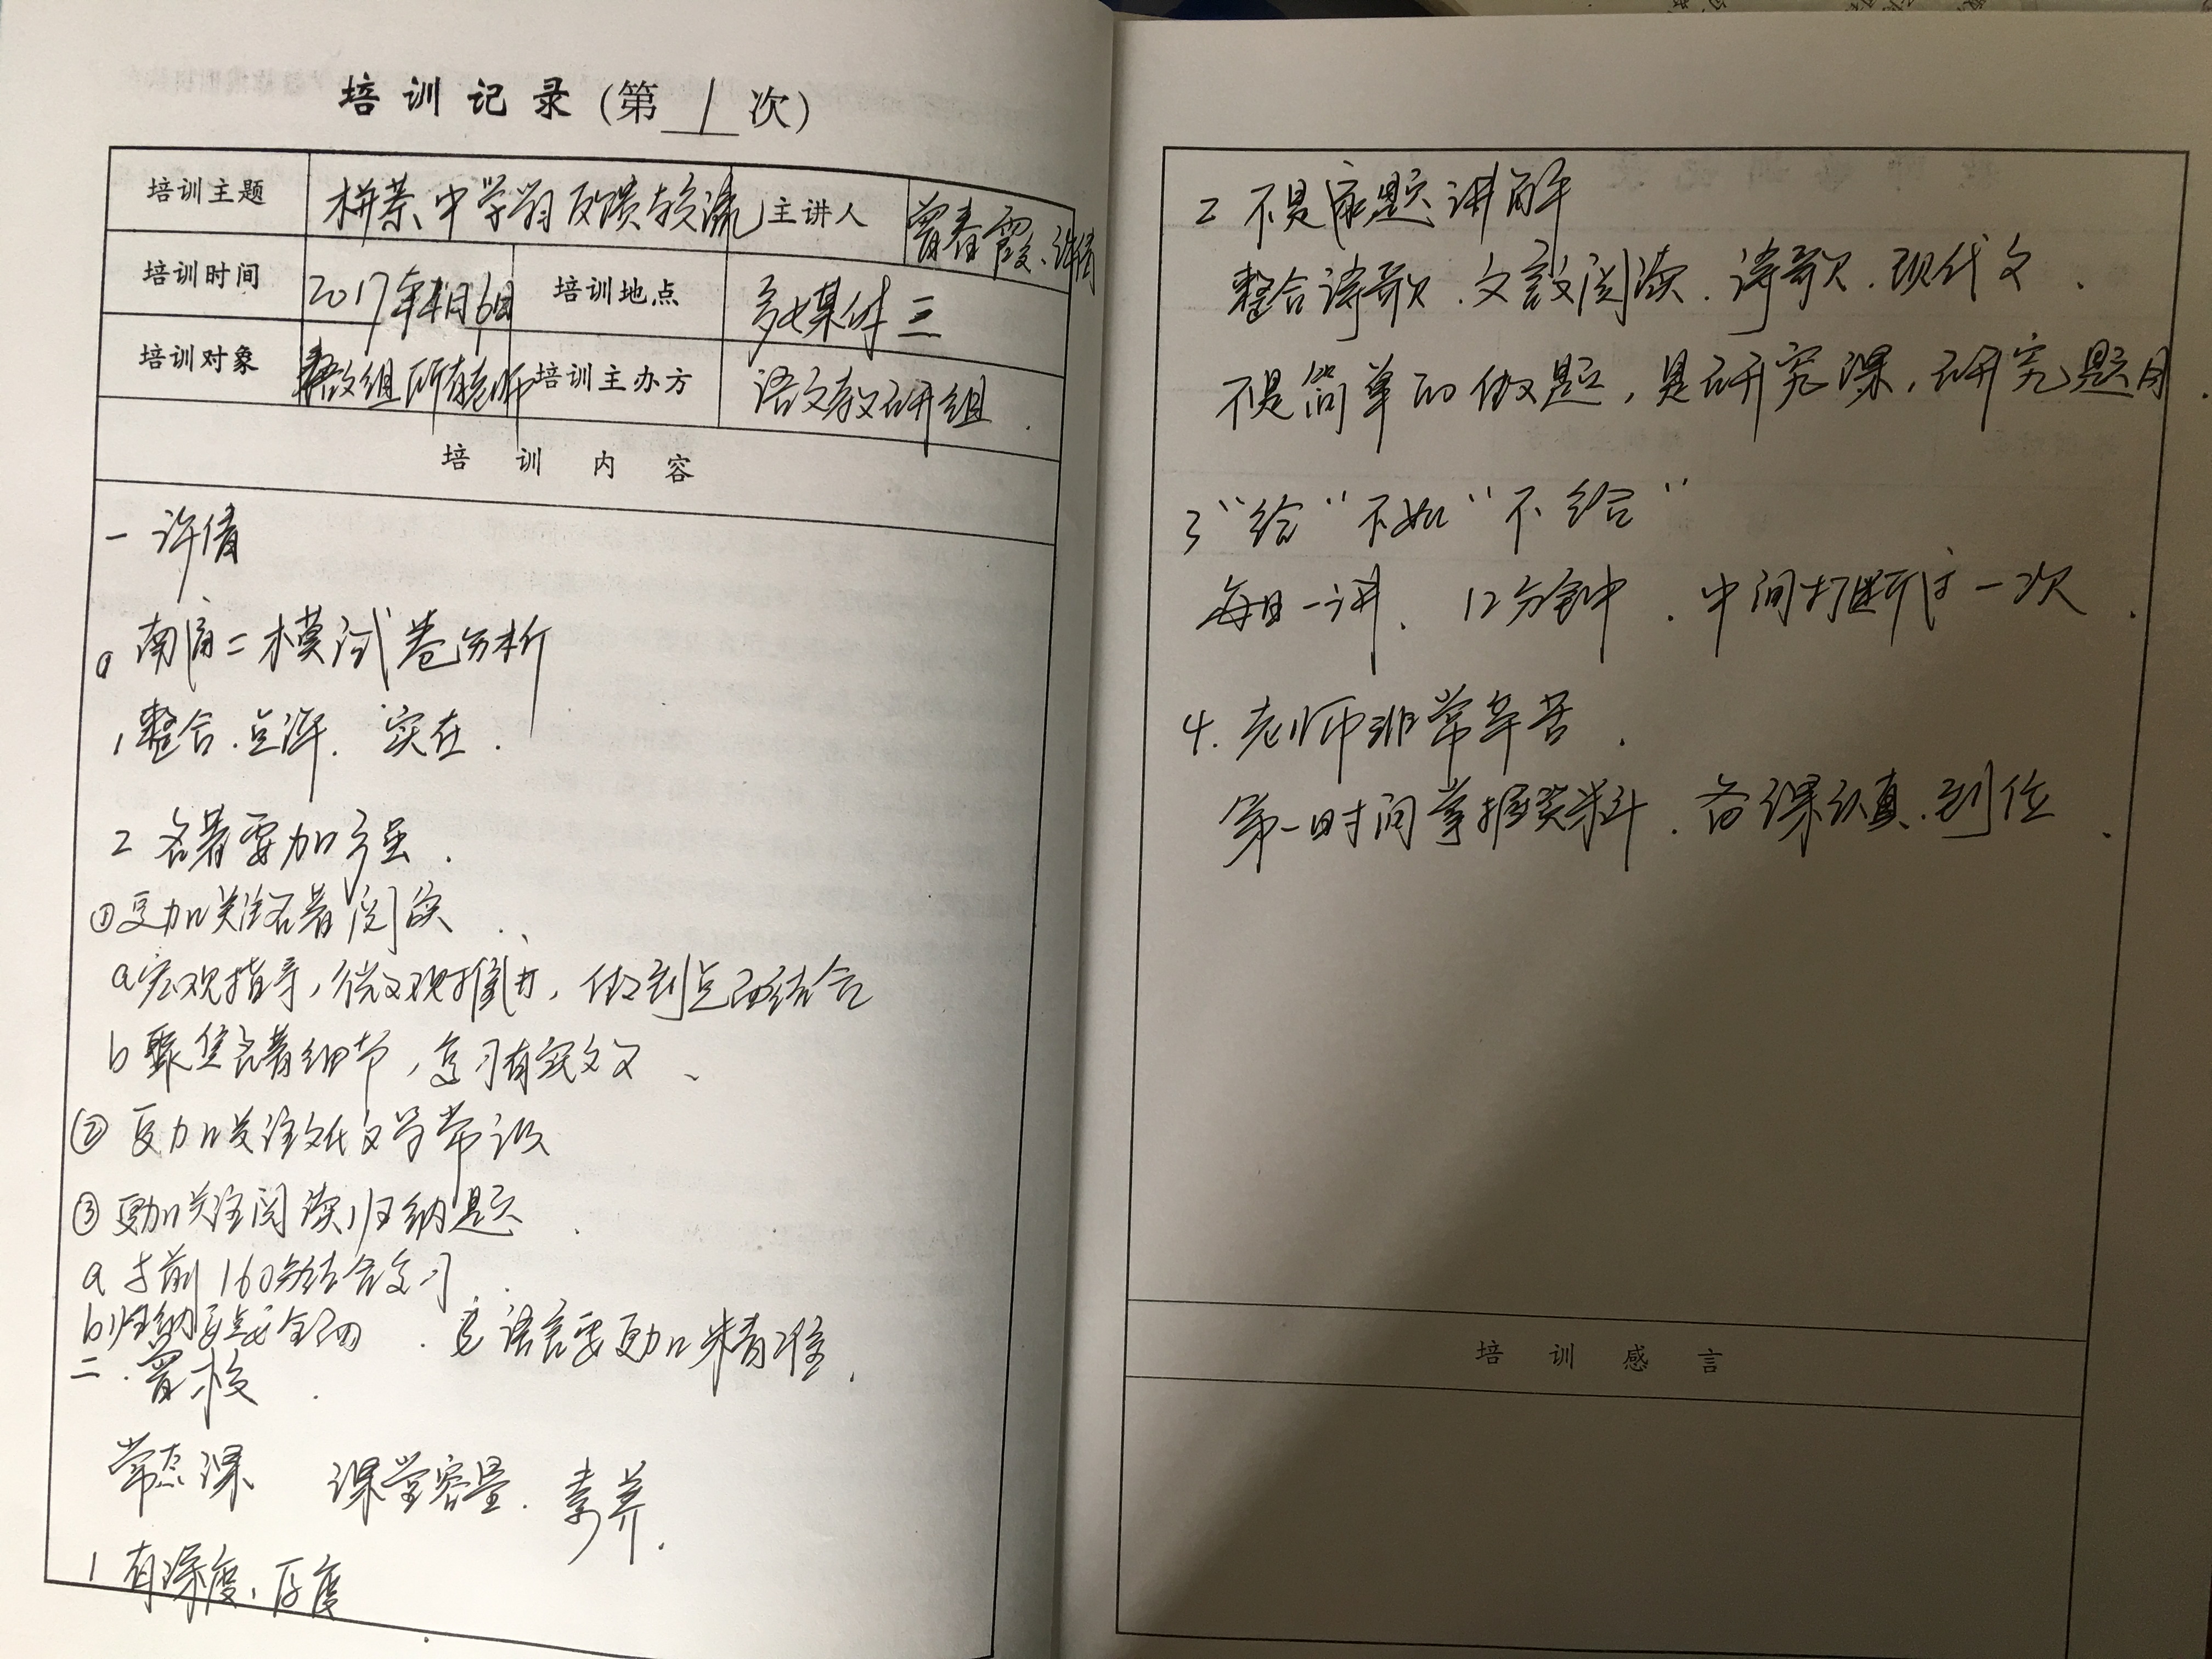 培训记录(第 1 次)
培训主题 栟茶中学学习反馈交流 主讲人 曾春霞、许倩
培训时间 2017年4月6日 培训地点 多媒体三
培训对象 教组所有老师 培训主办方 语文教研组.
培训内容
一 许倩
a 南通二模试卷分析
1 整合.点评.实在.
2 名著要加强.
①更加关注名著阅读.
a 宏观指导,微观推进,做到点面结合
b 聚焦名著细节,复习有实效
② 更加关注文化文学常识
③ 更加关注阅读归纳题.
a 与前160分结合复习.
b 归纳要点要全面.③语言要更加精准.
二.曾校.
常态课 课堂容量.素养.
1 有深度、厚度
2 不是就题讲解
整合诗歌.文言阅读.诗歌.现代文.
不是简单的做题,是研究课,研究题目.
3 “给”不如“不给”
每日一讲.12分钟.中间打断了一次.
4.老师非常辛苦.
第一时间掌握资料.备课认真.到位.
培训感言